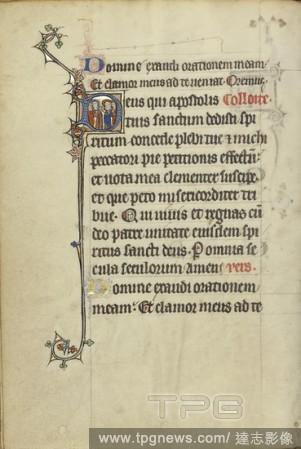 Domine exaudi orationem meam
Et clamor meus ad te veniat. Oremus
Deus qui apostolis Collecte
tuis sanctum dedisti spi
ritum concede plebi tue et michi
peccatori pie petitionis effectum
et vota mea clementer suscipe
et que peto misericorditer tri
bue. Qui vivis et regnas cum
deo patre unitate eiusdem spi
ritus sancti deus. P omnia se
cula seculorum amen. vers.
Domine exaudi orationem
meam: Et clamor meus ad te
TPG
www.tpgnews.com/ 達志影像